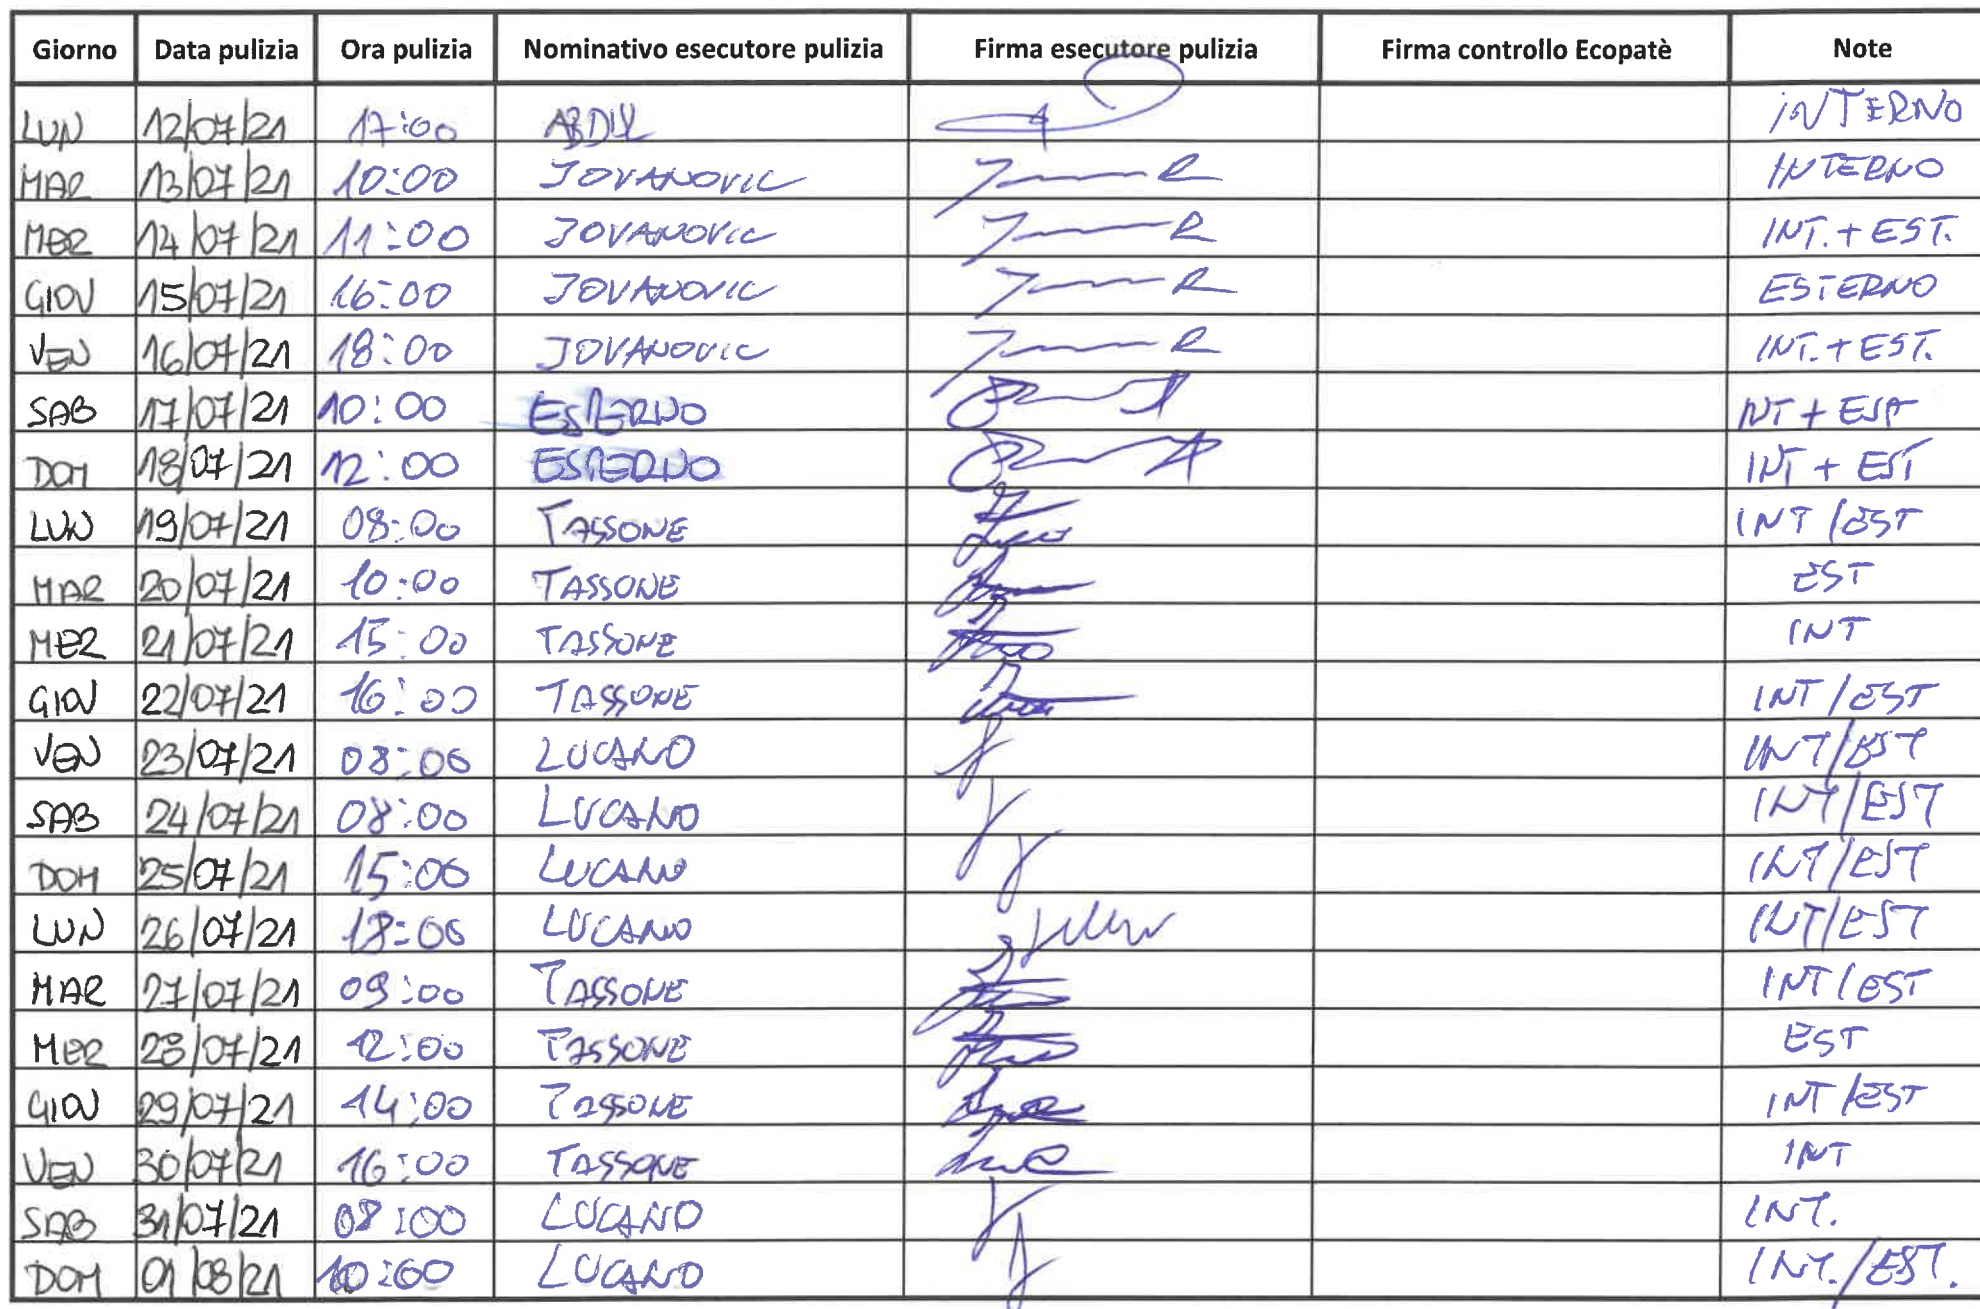 Giorno Data pulizia Ora pulizia Nominativo esecutore pulizia Firma esecutore pulizia Firma controllo Ecopatè Note
LUN 12/07/21 17:00 INTERNO
MAR 13/07/21 10:00 JOVANOVIC INTERNO
MER 14/07/21 11:00 JOVANOVIC INT. + EST.
GIOV 15/07/21 16:00 JOVANOVIC ESTERNO
VEN 16/07/21 18:00 JOVANOVIC INT. + EST.
SAB 17/07/21 10:00 ESTERNO INT + EST
DOM 18/07/21 12:00 ESTERNO INT + EST
LUN 19/07/21 08:00 TASSONE INT/EST
MAR 20/07/21 10:00 TASSONE EST
MER 21/07/21 15:00 TASSONE INT
GIOV 22/07/21 16:00 TASSONE INT/EST
VEN 23/07/21 08:00 LUCANO INT/EST
SAB 24/07/21 08:00 LUCANO INT/EST
DOM 25/07/21 15:00 LUCANO INT/EST
LUN 26/07/21 18:00 LUCANO INT/EST
MAR 27/07/21 09:00 TASSONE INT/EST
MER 28/07/21 12:00 TASSONE EST
GIOV 29/07/21 14:00 TASSONE INT/EST
VEN 30/07/21 16:00 TASSONE INT
SAB 31/07/21 08:00 LUCANO INT.
DOM 01/08/21 10:00 LUCANO INT./EST.